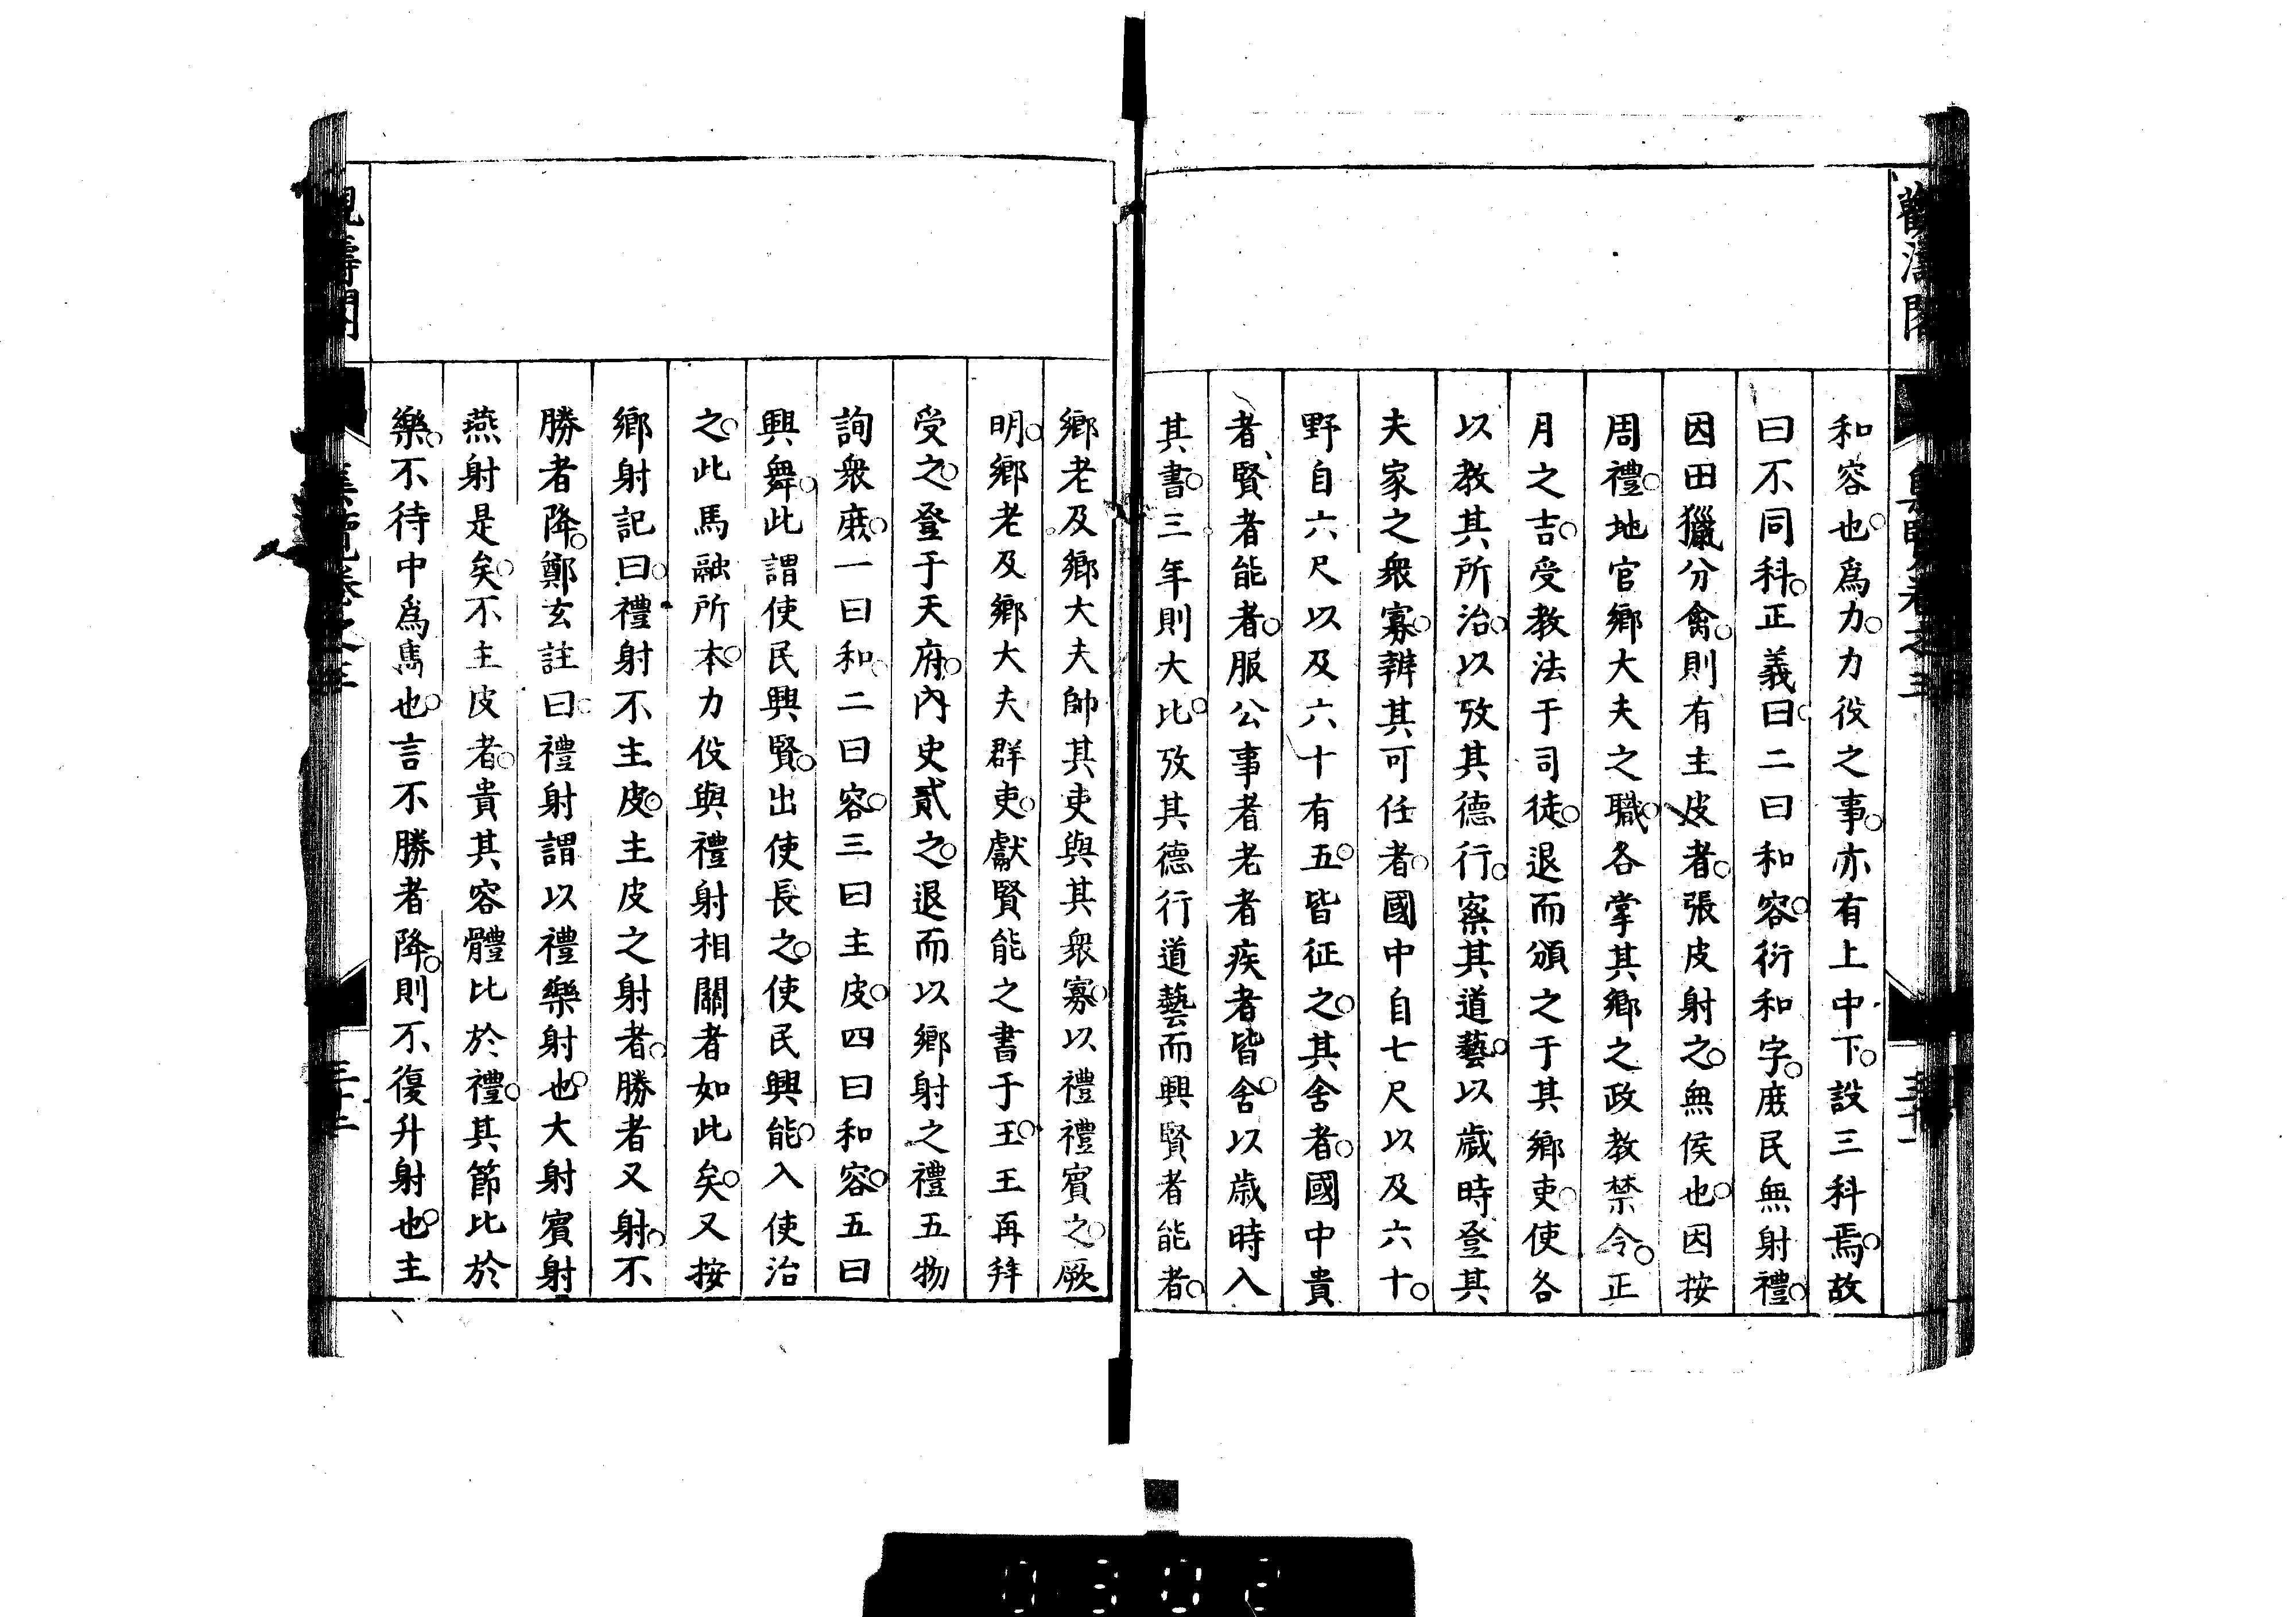 和容也。爲力。力役之事。亦有上中下。設三科焉。故
曰不同科。正義曰。二曰和容。衍和字。庻民無射禮。
因田獵分禽。則有主皮者。張皮射之。無侯也。因按
周禮。地官鄉大夫之職。各掌其鄉之政教禁令。正
月之吉。受教法于司徒。退而頒之于其鄉吏。使各
以教其所治。以攷其德行。察其道藝。以歲時登其
夫家之衆寡。辨其可任者。國中自七尺以及六十。
野自六尺以及六十有五。皆征之。其舍者。國中貴
者、賢者能者。服公事者老者疾者皆舍。以歲時入
其書。三年則大比。攷其德行道藝而興賢者能者。
鄉老及鄉大夫帥其吏與其衆寡。以禮禮賓之。厥
明。鄉老及鄉大夫群吏。獻賢能之書于王。王再拜
受之。登于天府。內史貳之。退而以鄉射之禮五物
詢衆庻。一曰和。二曰容。三曰主皮。四曰和容。五曰
興舞。此謂使民興賢。出使長之。使民興能。入使治
之。此馬融所本。力役與禮射相關者如此矣。又按
鄉射記曰。禮射不主皮。主皮之射者。勝者又射。不
勝者降。鄭玄註曰。禮射謂以禮樂射也。大射賓射
燕射是矣。不主皮者。貴其容體比於禮。其節比於
樂。不待中爲雋也。言不勝者降。則不復升射也。主